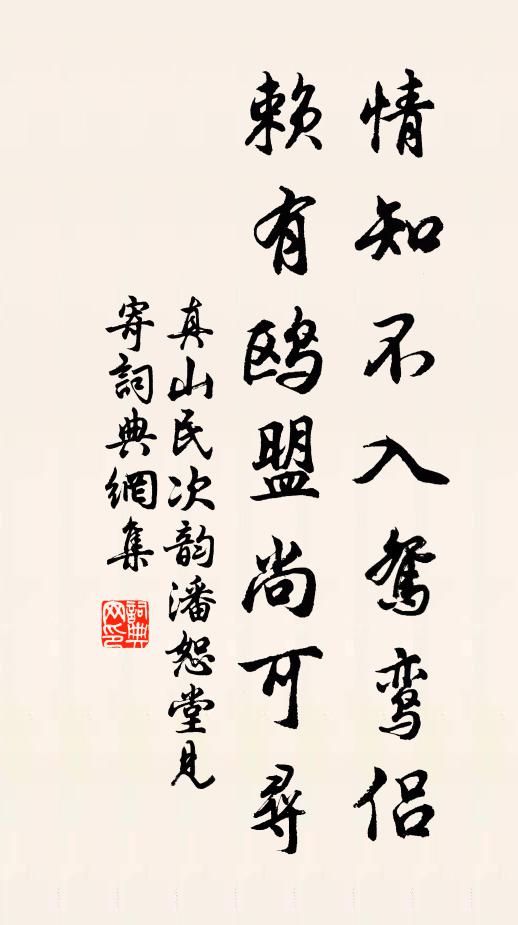 情知不入鸳鸾侣
赖有鸥盟尚可尋
真山民次韵潘恕堂見
寄詞典網集
詞典網印